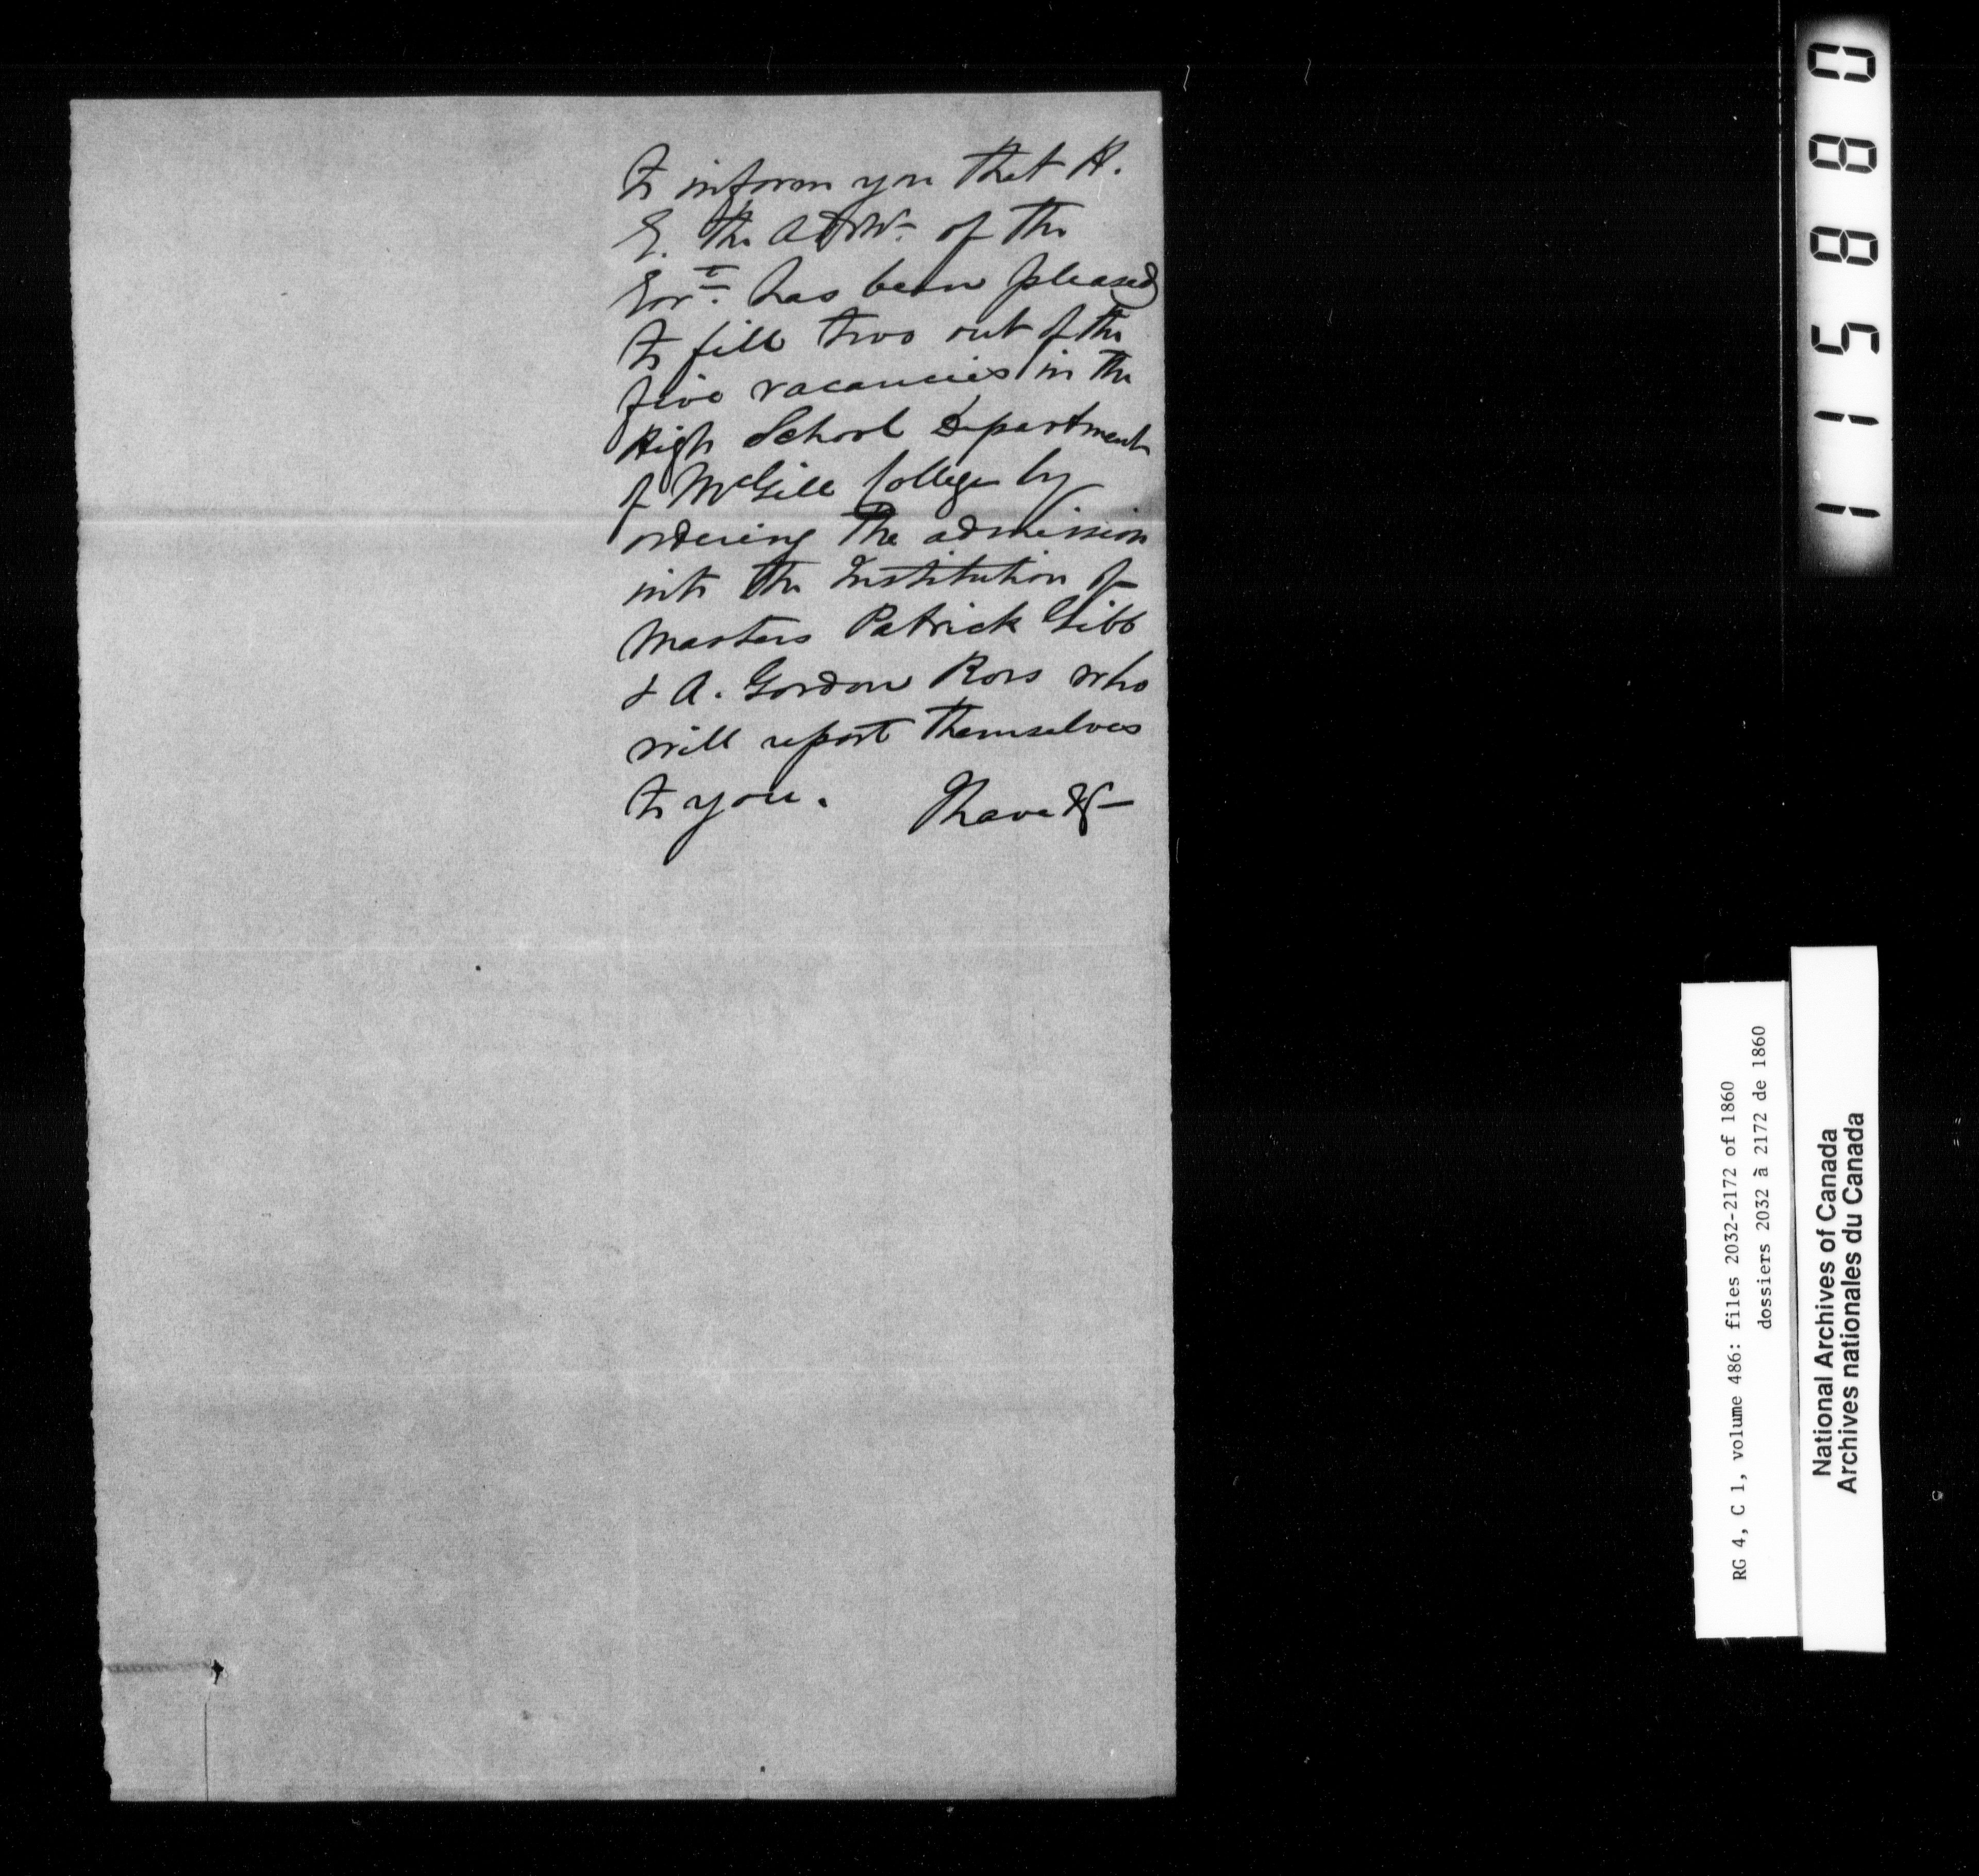 to inform you that H.
E. the Admr. of the
Govt. has been pleased
to fill two out of the
five vacancies in the
High School Department
of McGill College by
ordering the admission
into the Institution of
Masters Patrick Gibb
& A. Gordon Ross who
will report themselves
to you. I have &c
115880
RG 4, C 1, volume 486: files 2032-2172 of 1860
dossiers 2032 à 2172 de 1860
National Archives of Canada
Archives nationales du Canada